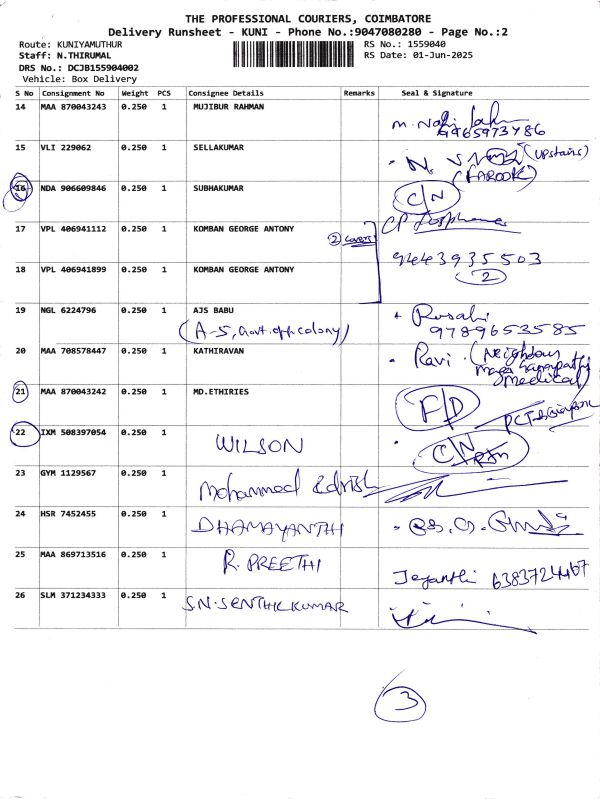 THE PROFESSIONAL COURIERS, COIMBATORE
Delivery Runsheet - KUNI - Phone No.:9047080280 - Page No.:2
Route: KUNIYAMUTHUR
RS No.: 1559040
Staff: N.THIRUMAL
RS Date: 01-Jun-2025
DRS No.: DCJB155904002
Vehicle: Box Delivery
S No Consignment No Weight PCS Consignee Details Remarks Seal & Signature
14 MAA 870043243 0.250 1 MUJIBUR RAHMAN
9965973486
15 VLI 229062 0.250 1 SELLAKUMAR
(upstairs)
(FAROOK)
16 NDA 906609846 0.250 1 SUBHAKUMAR C/N
17 VPL 406941112 0.250 1 KOMBAN GEORGE ANTONY
2 covers
18 VPL 406941899 0.250 1 KOMBAN GEORGE ANTONY 9443935503
2
19 NGL 6224796 0.250 1 AJS BABU
(A-5, Govt. off. colony) 9789653585
20 MAA 708578447 0.250 1 KATHIRAVAN Ravi (Neighbour
Medical)
21 MAA 870043242 0.250 1 MD.ETHIRIES F/D
22 IXM 508397054 0.250 1 WILSON C/N
23 GYM 1129567 0.250 1 Mohammed Edrish
24 HSR 7452455 0.250 1 DHAMAYANTHI
25 MAA 869713516 0.250 1 R. PREETHI Jeyanthi 6383724467
26 SLM 371234333 0.250 1 S.N.SENTHIL KUMAR
3